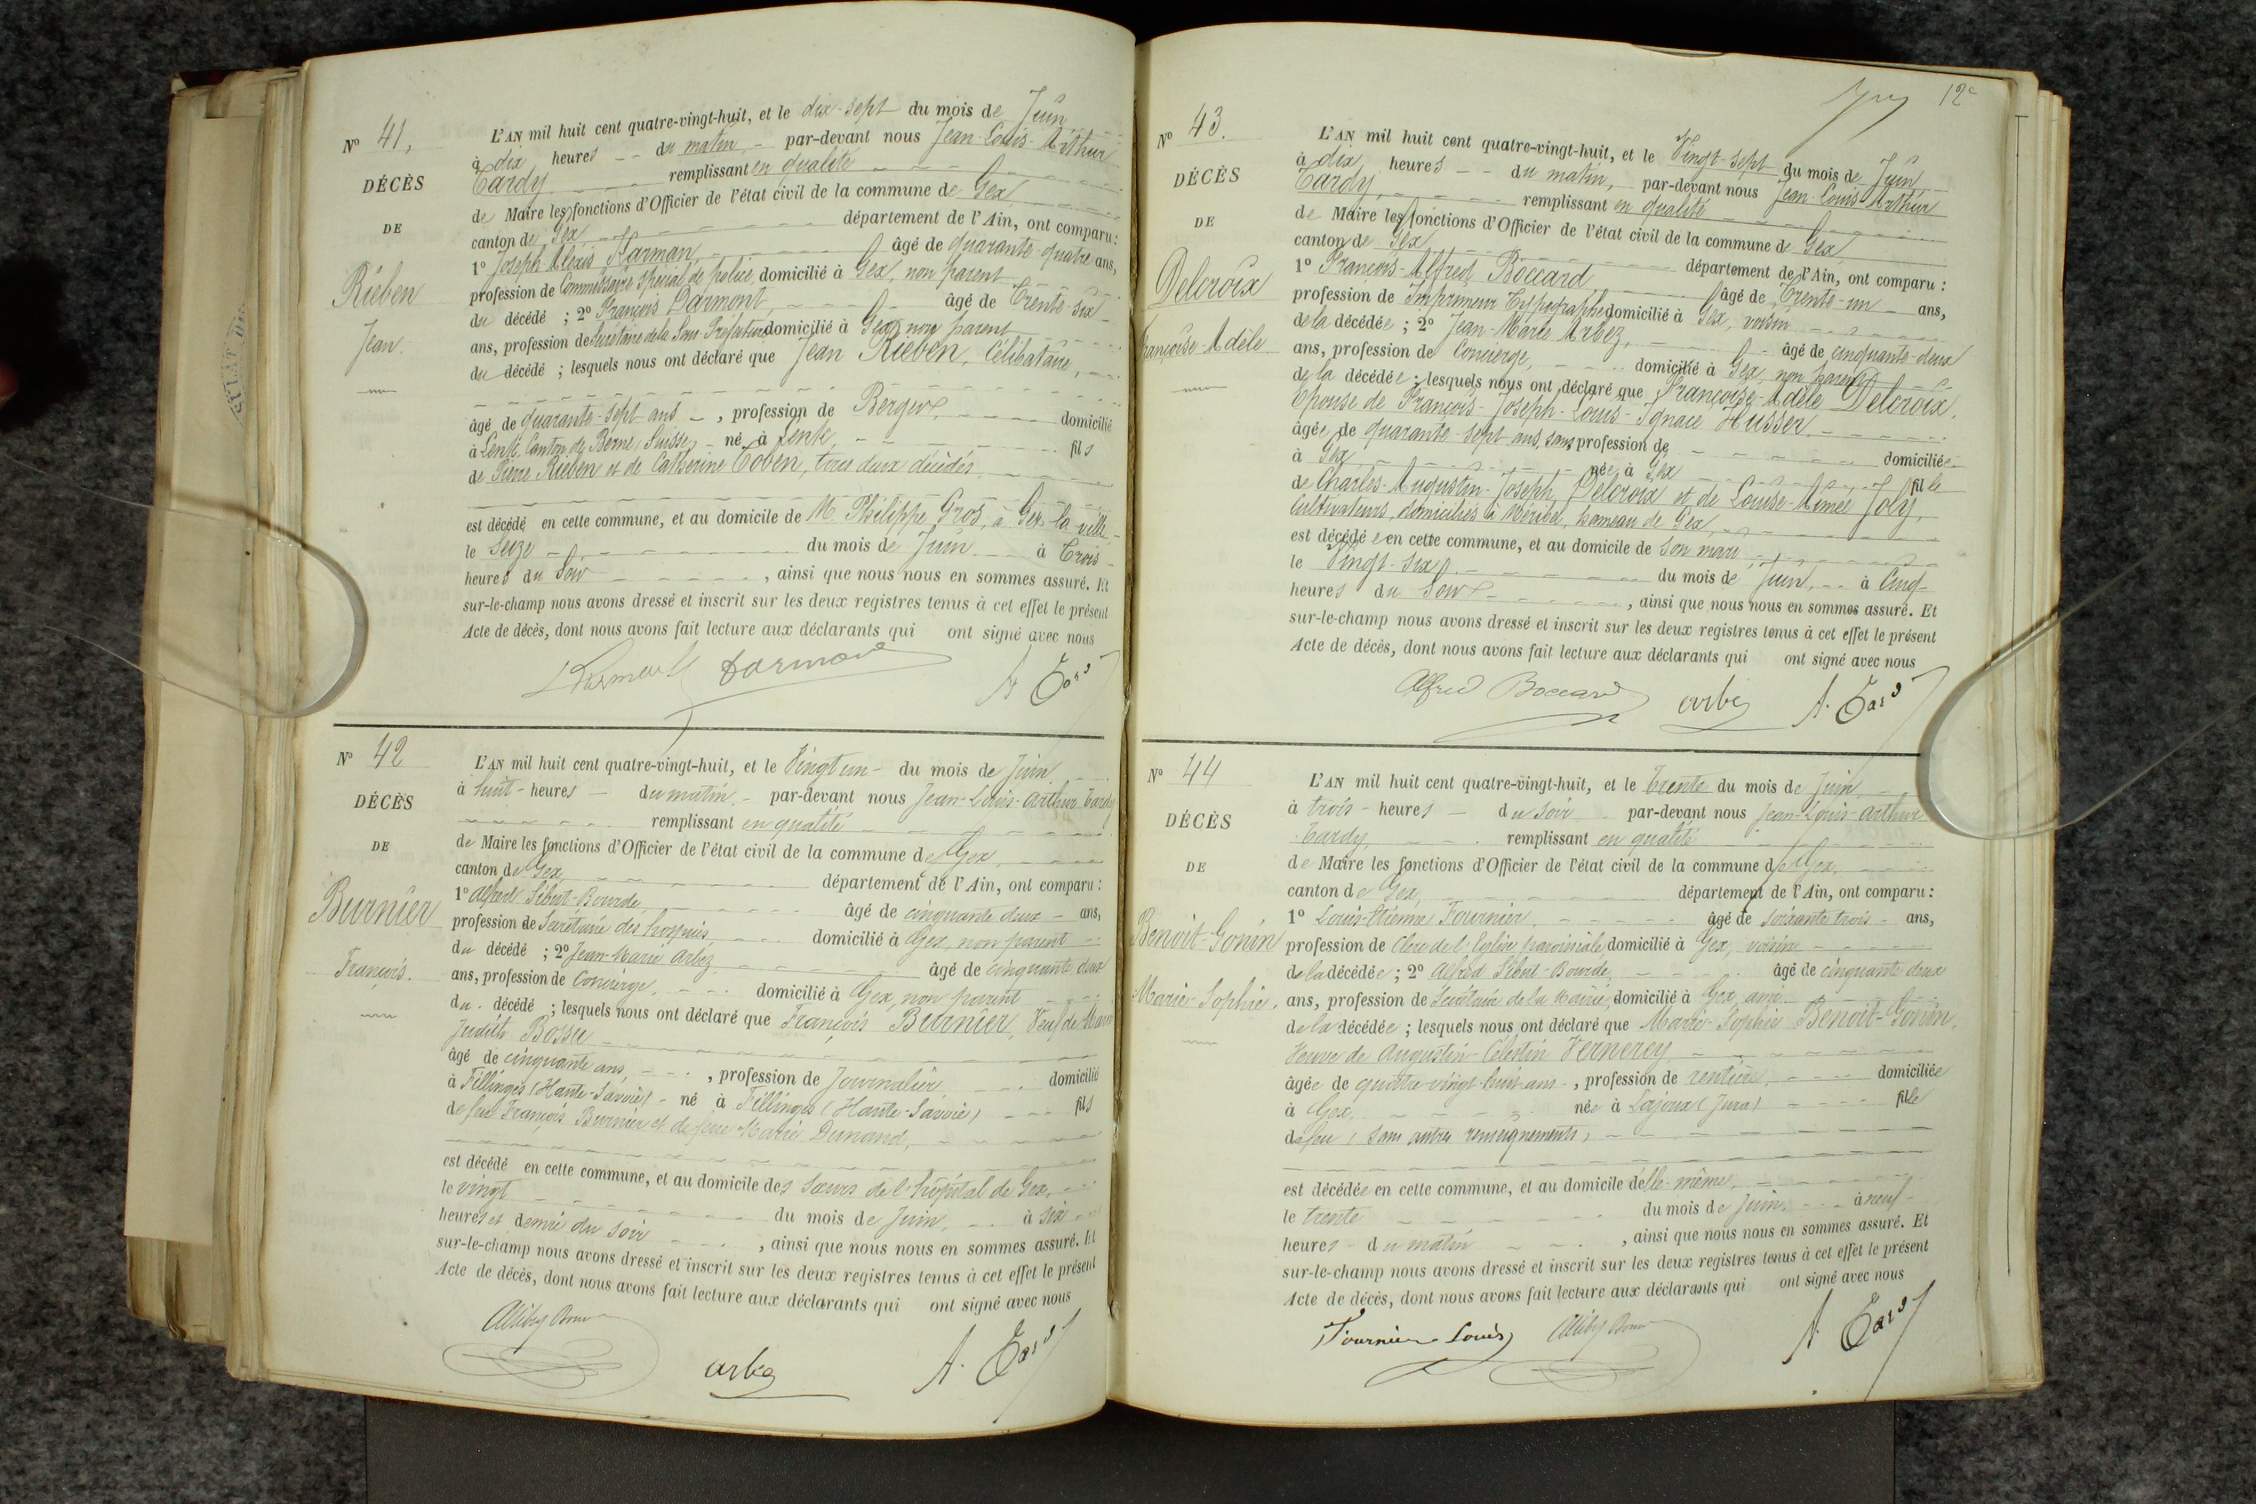 N° 41,
DÉCÈS
DE
Rieben
Jean.
L'AN mil huit cent quatre-vingt-huit, et le dix-sept du mois de Juin
à dix heures du matin, par-devant nous Jean-Louis-Arthur
Tardy remplissant en qualité
de Maire les fonctions d'Officier de l'état civil de la commune de Gex
canton de Gex département de l'Ain, ont comparu :
1° Joseph Alexis Harman, âgé de quarante-quatre ans,
profession de Commissaire spécial de police, domicilié à Gex, non parent
du décédé ; 2° François Darmont, âgé de trente-six
ans, profession de Secrétaire de la Sous-Préfecture, domicilié à Gex, non parent
du décédé ; lesquels nous ont déclaré que Jean Rieben, Célibataire,
âgé de quarante-sept ans, profession de Berger, domicilié
à Lenk, Canton de Berne, Suisse, né à Lenk, fils
de Pierre Rieben et de Catherine Toben, tous deux décédés
est décédé en cette commune, et au domicile de M. Philippe Gros, à Gex-la-ville
le Seize du mois de Juin à Trois
heures du Soir, ainsi que nous nous en sommes assuré. Et
sur-le-champ nous avons dressé et inscrit sur les deux registres tenus à cet effet le présent
Acte de décès, dont nous avons fait lecture aux déclarants qui ont signé avec nous
Darmont A Tardy
N° 42
DÉCÈS
DE
Burnier
François.
L'AN mil huit cent quatre-vingt-huit, et le Vingt un du mois de Juin
à huit heures du matin, par-devant nous Jean-Louis-Arthur Tardy
remplissant en qualité
de Maire les fonctions d'Officier de l'état civil de la commune de Gex,
canton de Gex, département de l'Ain, ont comparu :
1° Alfred Sébut-Bourde, âgé de cinquante deux ans,
profession de Secrétaire des hospices, domicilié à Gex, non parent
du décédé ; 2° Jean-Marie Arbez, âgé de cinquante deux
ans, profession de Concierge, domicilié à Gex, non parent
du décédé ; lesquels nous ont déclaré que François Burnier, Veuf de Marie
Judith Bossu
âgé de cinquante ans, profession de Journalier domicilié
à Fillinges (Haute-Savoie) né à Fillinges (Haute-Savoie) fils
de feu François Burnier et de feue Marie Dunand,
est décédé en cette commune, et au domicile des sœurs de l'hôpital de Gex,
le vingt du mois de Juin, à six
heures et demie du soir, ainsi que nous nous en sommes assuré. Et
sur-le-champ nous avons dressé et inscrit sur les deux registres tenus à cet effet le présent
Acte de décès, dont nous avons fait lecture aux déclarants qui ont signé avec nous
arbez A. Tardy
12e
N° 43.
DÉCÈS
DE
Delcroix
Françoise-Adèle
L'AN mil huit cent quatre-vingt-huit, et le Vingt-sept du mois de Juin
à dix heures du matin, par-devant nous Jean-Louis-Arthur
Tardy, remplissant en qualité
de Maire les fonctions d'Officier de l'état civil de la commune de Gex
canton de Gex département de l'Ain, ont comparu :
1° François-Alfred Boccard âgé de Trente-un ans,
profession de Imprimeur Typographe domicilié à Gex, voisin
de la décédée ; 2° Jean-Marie Arbez, âgé de cinquante-deux
ans, profession de Concierge, domicilié à Gex, non parent
de la décédée ; lesquels nous ont déclaré que Françoise-Adèle Delcroix,
Épouse de François-Joseph-Louis-Ignace Husser
âgée de quarante-sept ans, sans profession de domiciliée
à Gex née à Gex fille
de Charles-Augustin-Joseph Delcroix et de Louise-Aimée Joly,
Cultivateurs, domiciliés à Méribel, hameau de Gex,
est décédée en cette commune, et au domicile de son mari
le Vingt-six du mois de Juin, à Cinq
heures du Soir, ainsi que nous nous en sommes assuré. Et
sur-le-champ nous avons dressé et inscrit sur les deux registres tenus à cet effet le présent
Acte de décès, dont nous avons fait lecture aux déclarants qui ont signé avec nous
Alfred Boccard arbez A. Tardy
N° 44
DÉCÈS
DE
Benoit-Gonin
Marie-Sophie.
L'AN mil huit cent quatre-vingt-huit, et le Trente du mois de Juin
à trois heures du soir par-devant nous Jean-Louis-Arthur
Tardy, remplissant en qualité
de Maire les fonctions d'Officier de l'état civil de la commune de Gex,
canton de Gex, département de l'Ain, ont comparu :
1° Louis-Etienne Fournier, âgé de soixante trois ans,
profession de Clerc de l'Eglise paroissiale, domicilié à Gex, voisin
de la décédée ; 2° Alfred Sébut-Bourde, âgé de cinquante deux
ans, profession de Secrétaire de la Mairie, domicilié à Gex, ami
de la décédée ; lesquels nous ont déclaré que Marie-Sophie Benoit-Gonin,
Veuve de Augustin-Célestin Vernerey
âgée de quatre-vingt-huit ans, profession de rentière, domiciliée
à Gex, née à Lajoux (Jura) fille
de feu (sans autres renseignements)
est décédée en cette commune, et au domicile d'elle-même,
le trente du mois de Juin, à neuf
heures du matin, ainsi que nous nous en sommes assuré. Et
sur-le-champ nous avons dressé et inscrit sur les deux registres tenus à cet effet le présent
Acte de décès, dont nous avons fait lecture aux déclarants qui ont signé avec nous
Fournier Louis A. Tardy